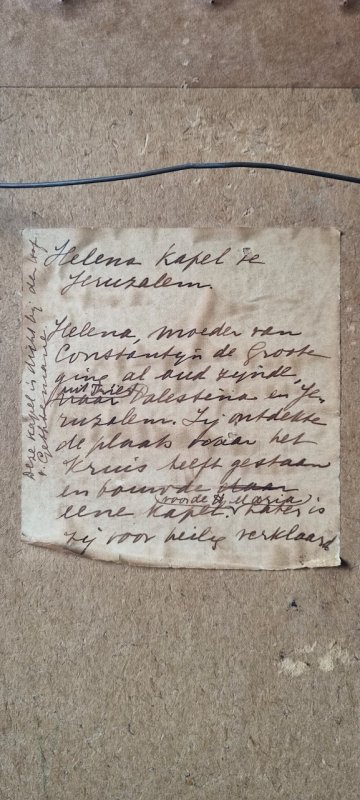 Helena Kapel te
Jeruzalem.
Helena, moeder van
Constantyn de Groote
ging al oud zijnde,
naar Palestina en Je-
ruzalem. Zij ontdekte
de plaats waar het
Kruis heeft gestaan
en bouwde daar
(voor de H. Maria)
eene Kapel. Later is
zij voor heilig verklaard
Deze kapel is dicht bij den hof
v. Gethsemané